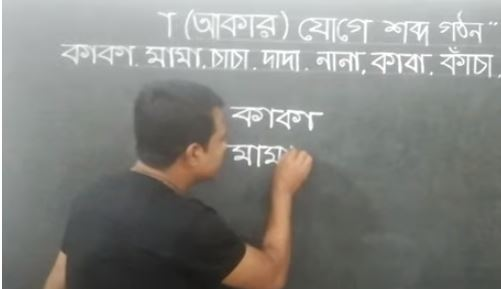 া (আকার) যোগে শব্দ গঠন"
কাকা. মামা. চাচা. দাদা. নানা. কাবা. কাঁচা.
কাকা
মামা